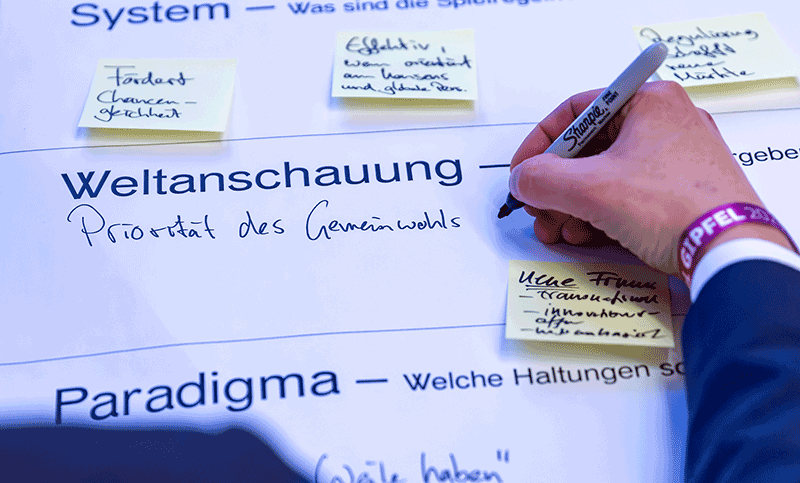 System — Was sind die Spielregeln
Fördert
Chancen-
gleichheit
Effektiv,
wenn orientiert
am Konsens
und globale Pers.
Regulierung
schafft
neue
Märkte
Weltanschauung —
ergeben
Priorität des Gemeinwohls
Sharpie
FINE POINT
GIPFEL
Neue
- innovations-
offen
Paradigma — Welche Haltungen
haben"